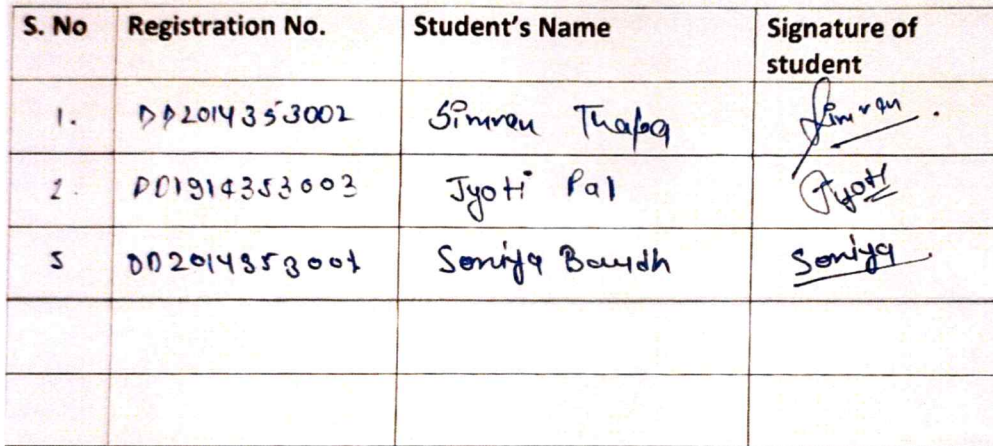 S. No Registration No. Student's Name Signature of student
1. DD2014353002 Simran Thapa Simran.
2. DD1914353003 Jyoti Pal Jyoti
3 DD2014353001 Soniya Baudh Soniya.